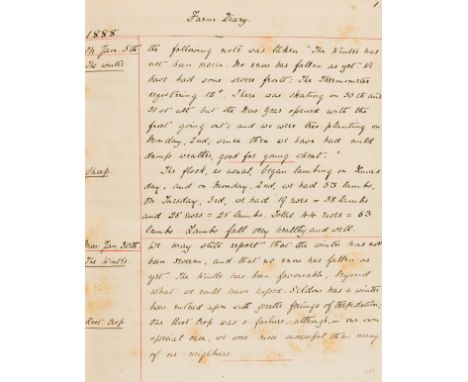 1
Farm Diary.
1888
On Jan. 5th the following note was taken "The Winter has
The Winter not been severe. No snow has fallen as yet. We
have had some severe frosts: the Thermometer
registering 12°. There was skating on 30th and
31st ult. but the New Year opened with the
frost going out; and we were tree planting on
Monday, 2nd; since then we have had mild
damp weather, good for young wheat."
Sheep. The flock, as usual, began lambing on Xmas
day, and on Monday, 2nd, we had 53 lambs,
On Tuesday, 3rd, we had 19 ewes = 38 lambs
and 25 ewes = 25 lambs. Total 44 ewes = 63
lambs. Lambs fall very healthy and well.
Mon: Jan. 30th We may still report that the winter has not
The Winter. been severe, and that no snow has fallen as
yet. The Winter has been favourable, beyond
what we could have hoped. Seldom has a winter
been entered upon with greater feelings of trepidation;
Root Crop our Root Crop was a failure, although, in our own
special case, we were more successful than many
of our neighbours.